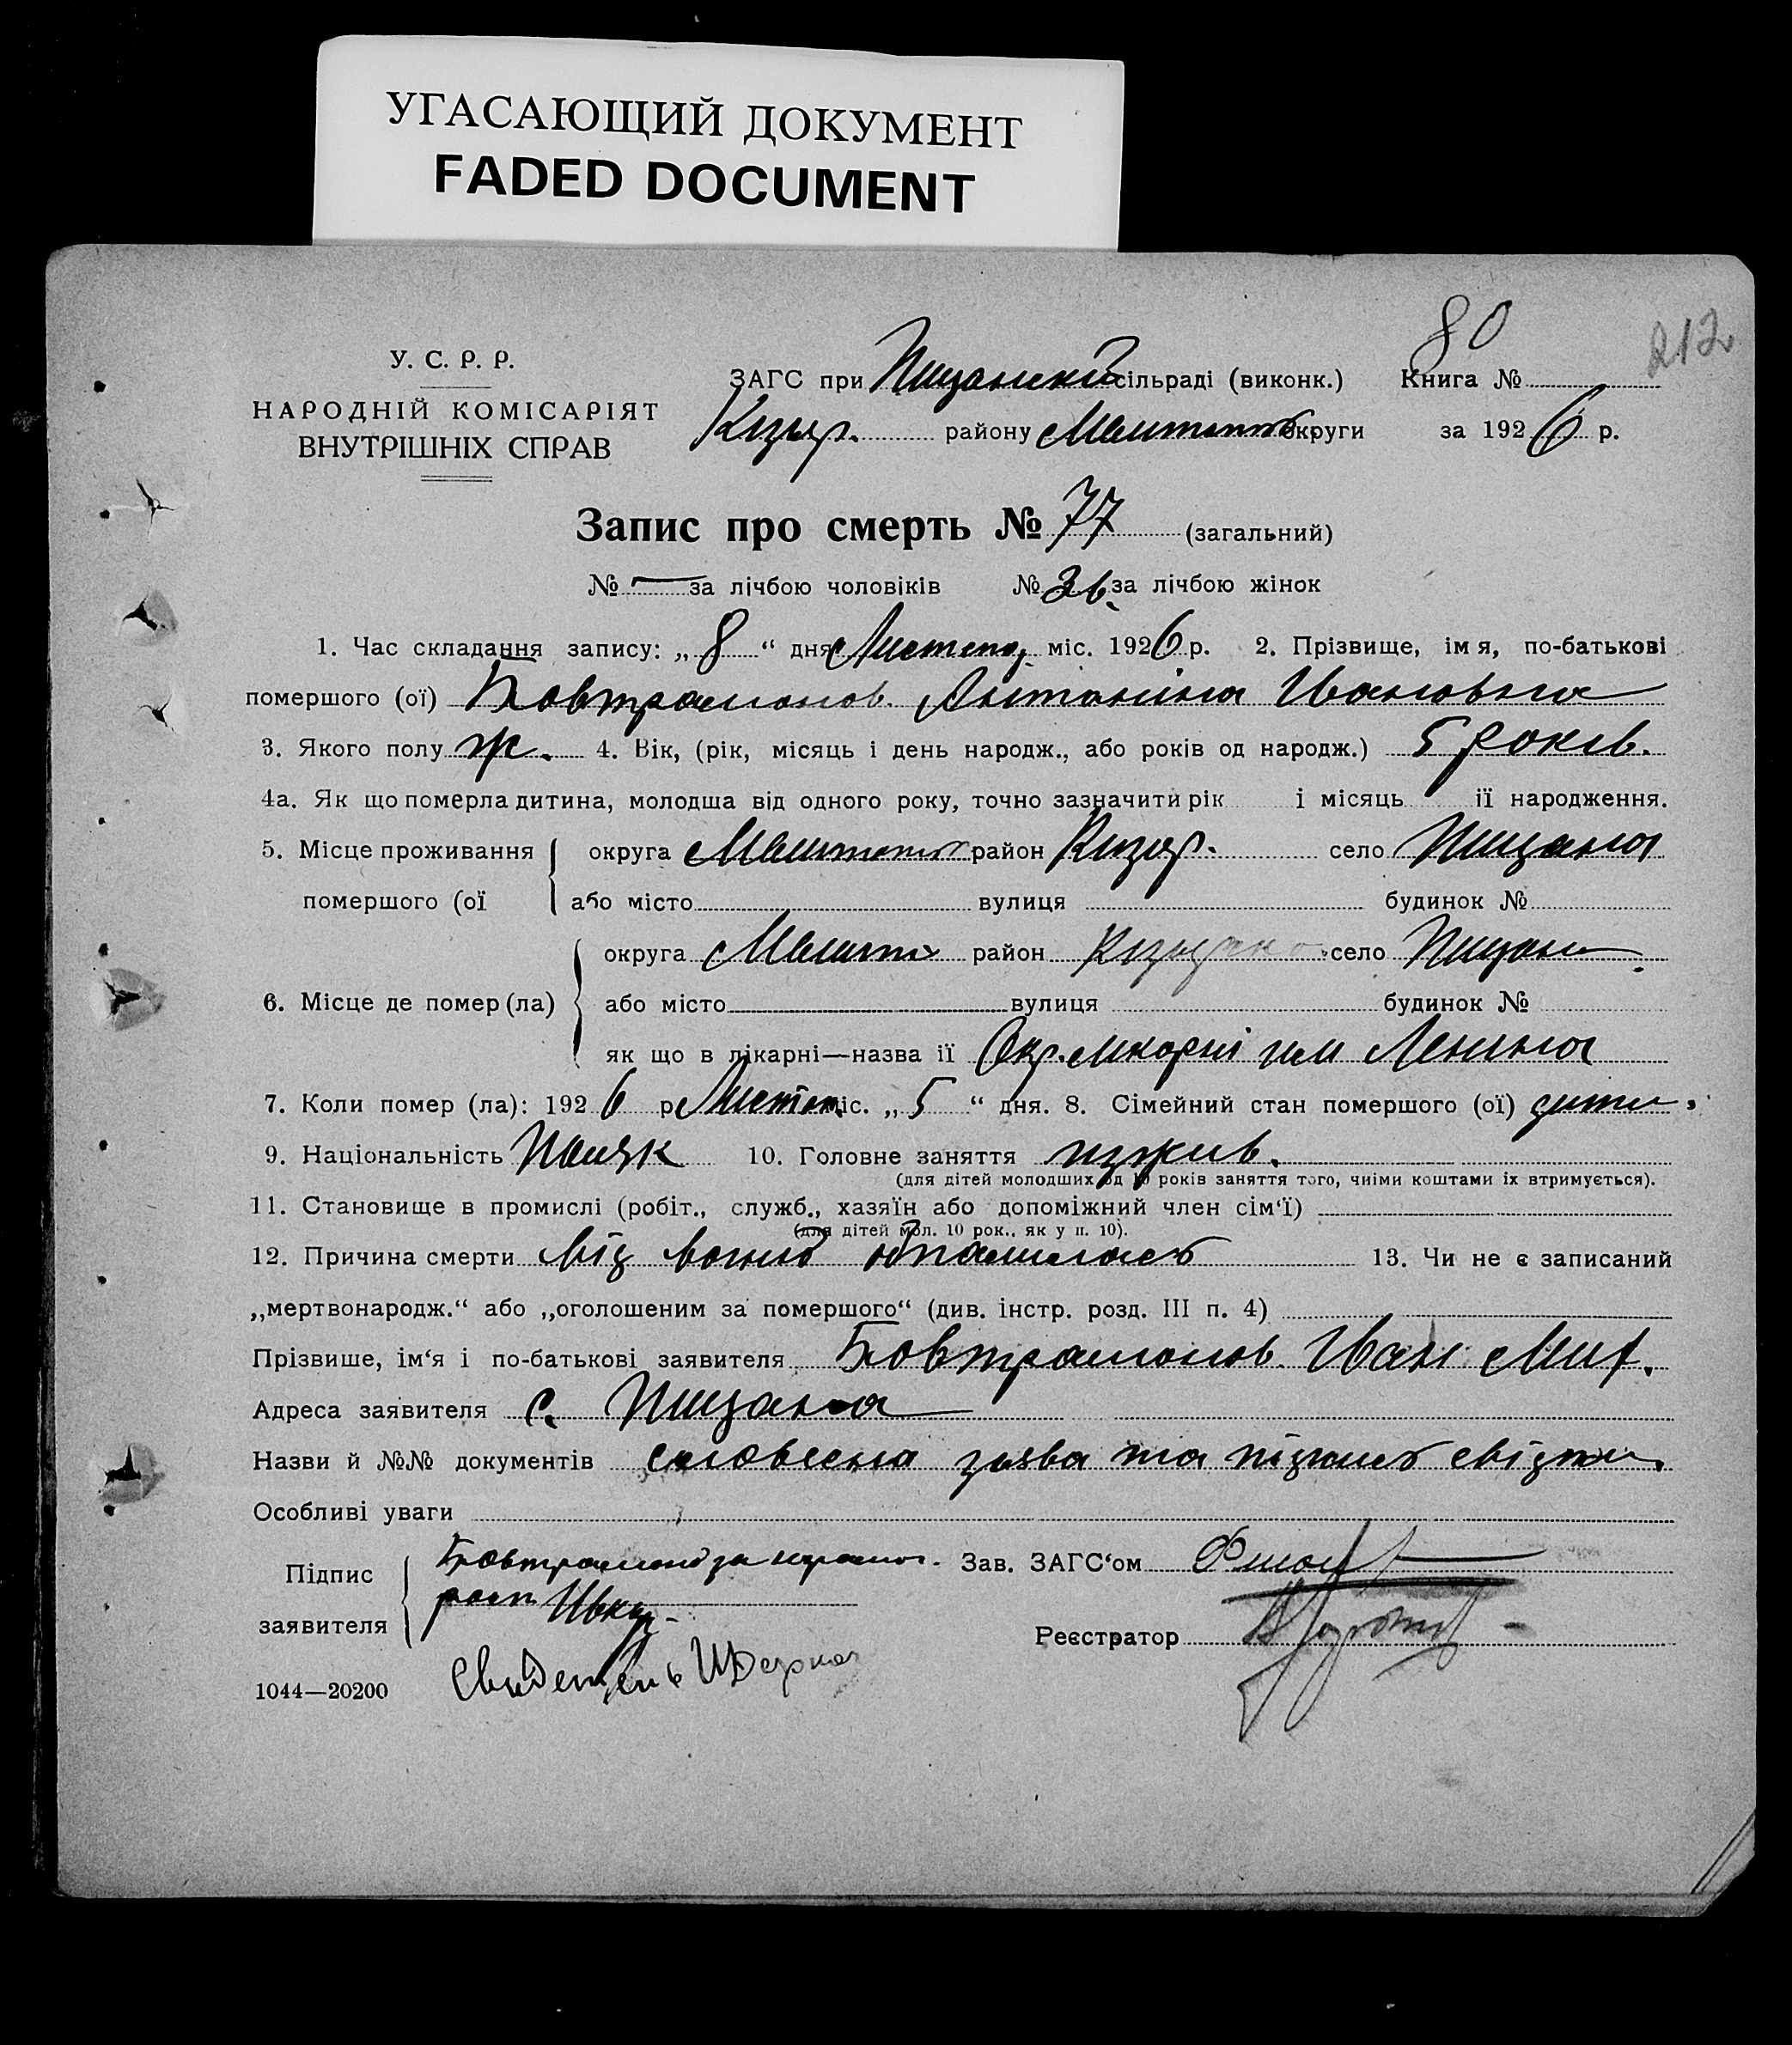 УГАСАЮЩИЙ ДОКУМЕНТ
FADED DOCUMENT
80
212
У. С. Р. Р.
ЗАГС при сільраді (виконк.) Книга №
НАРОДНІЙ КОМІСАРІЯТ
району округи за 1926 р.
ВНУТРІШНІХ СПРАВ
Запис про смерть № 77 (загальний)
№ — за лічбою чоловіків № 36 за лічбою жінок
1. Час складання запису: „ 8 “ дня Листопад. міс. 1926 р. 2. Прізвище, ім я, по-батькові
помершого (ої) Бовтрамонов. Антаніна Івановна
3. Якого полу ж. 4. Вік, (рік, місяць і день народж., або років од народж.) 5 років.
4а. Як що померла дитина, молодша від одного року, точно зазначити рік і місяць її народження.
5. Місце проживання округа район село Пищана
помершого (ої або місто вулиця будинок №
округа район село Пищан
6. Місце де помер (ла) або місто вулиця будинок №
як що в лікарні—назва її Окр. лікарні ім Леніна
7. Коли помер (ла): 1926 р. Листоп. міс. „ 5 “ дня. 8. Сімейний стан помершого (ої) дити.
9. Національність Поляк 10. Головне заняття
(для дітей молодших од 10 років заняття того, чиїми коштами їх втримується).
11. Становище в промислі (робіт., служб., хазяїн або допоміжний член сім‘ї)
(для дітей мол. 10 рок., як у п. 10).
12. Причина смерти від вогню 13. Чи не є записаний
„мертвонародж.“ або „оголошеним за помершого“ (див. інстр. розд. III п. 4)
Прізвише, ім‘я і по-батькові заявителя Бовтрамонов. Іван Мих.
Адреса заявителя с. Пищана
Назви й №№ документів словесна заява та підпись свідки.
Особливі уваги
Підпис Бовтрамонов за неграмот. Зав. ЗАГС‘ом
заявителя
Реєстратор
1044—20200 Свидетель